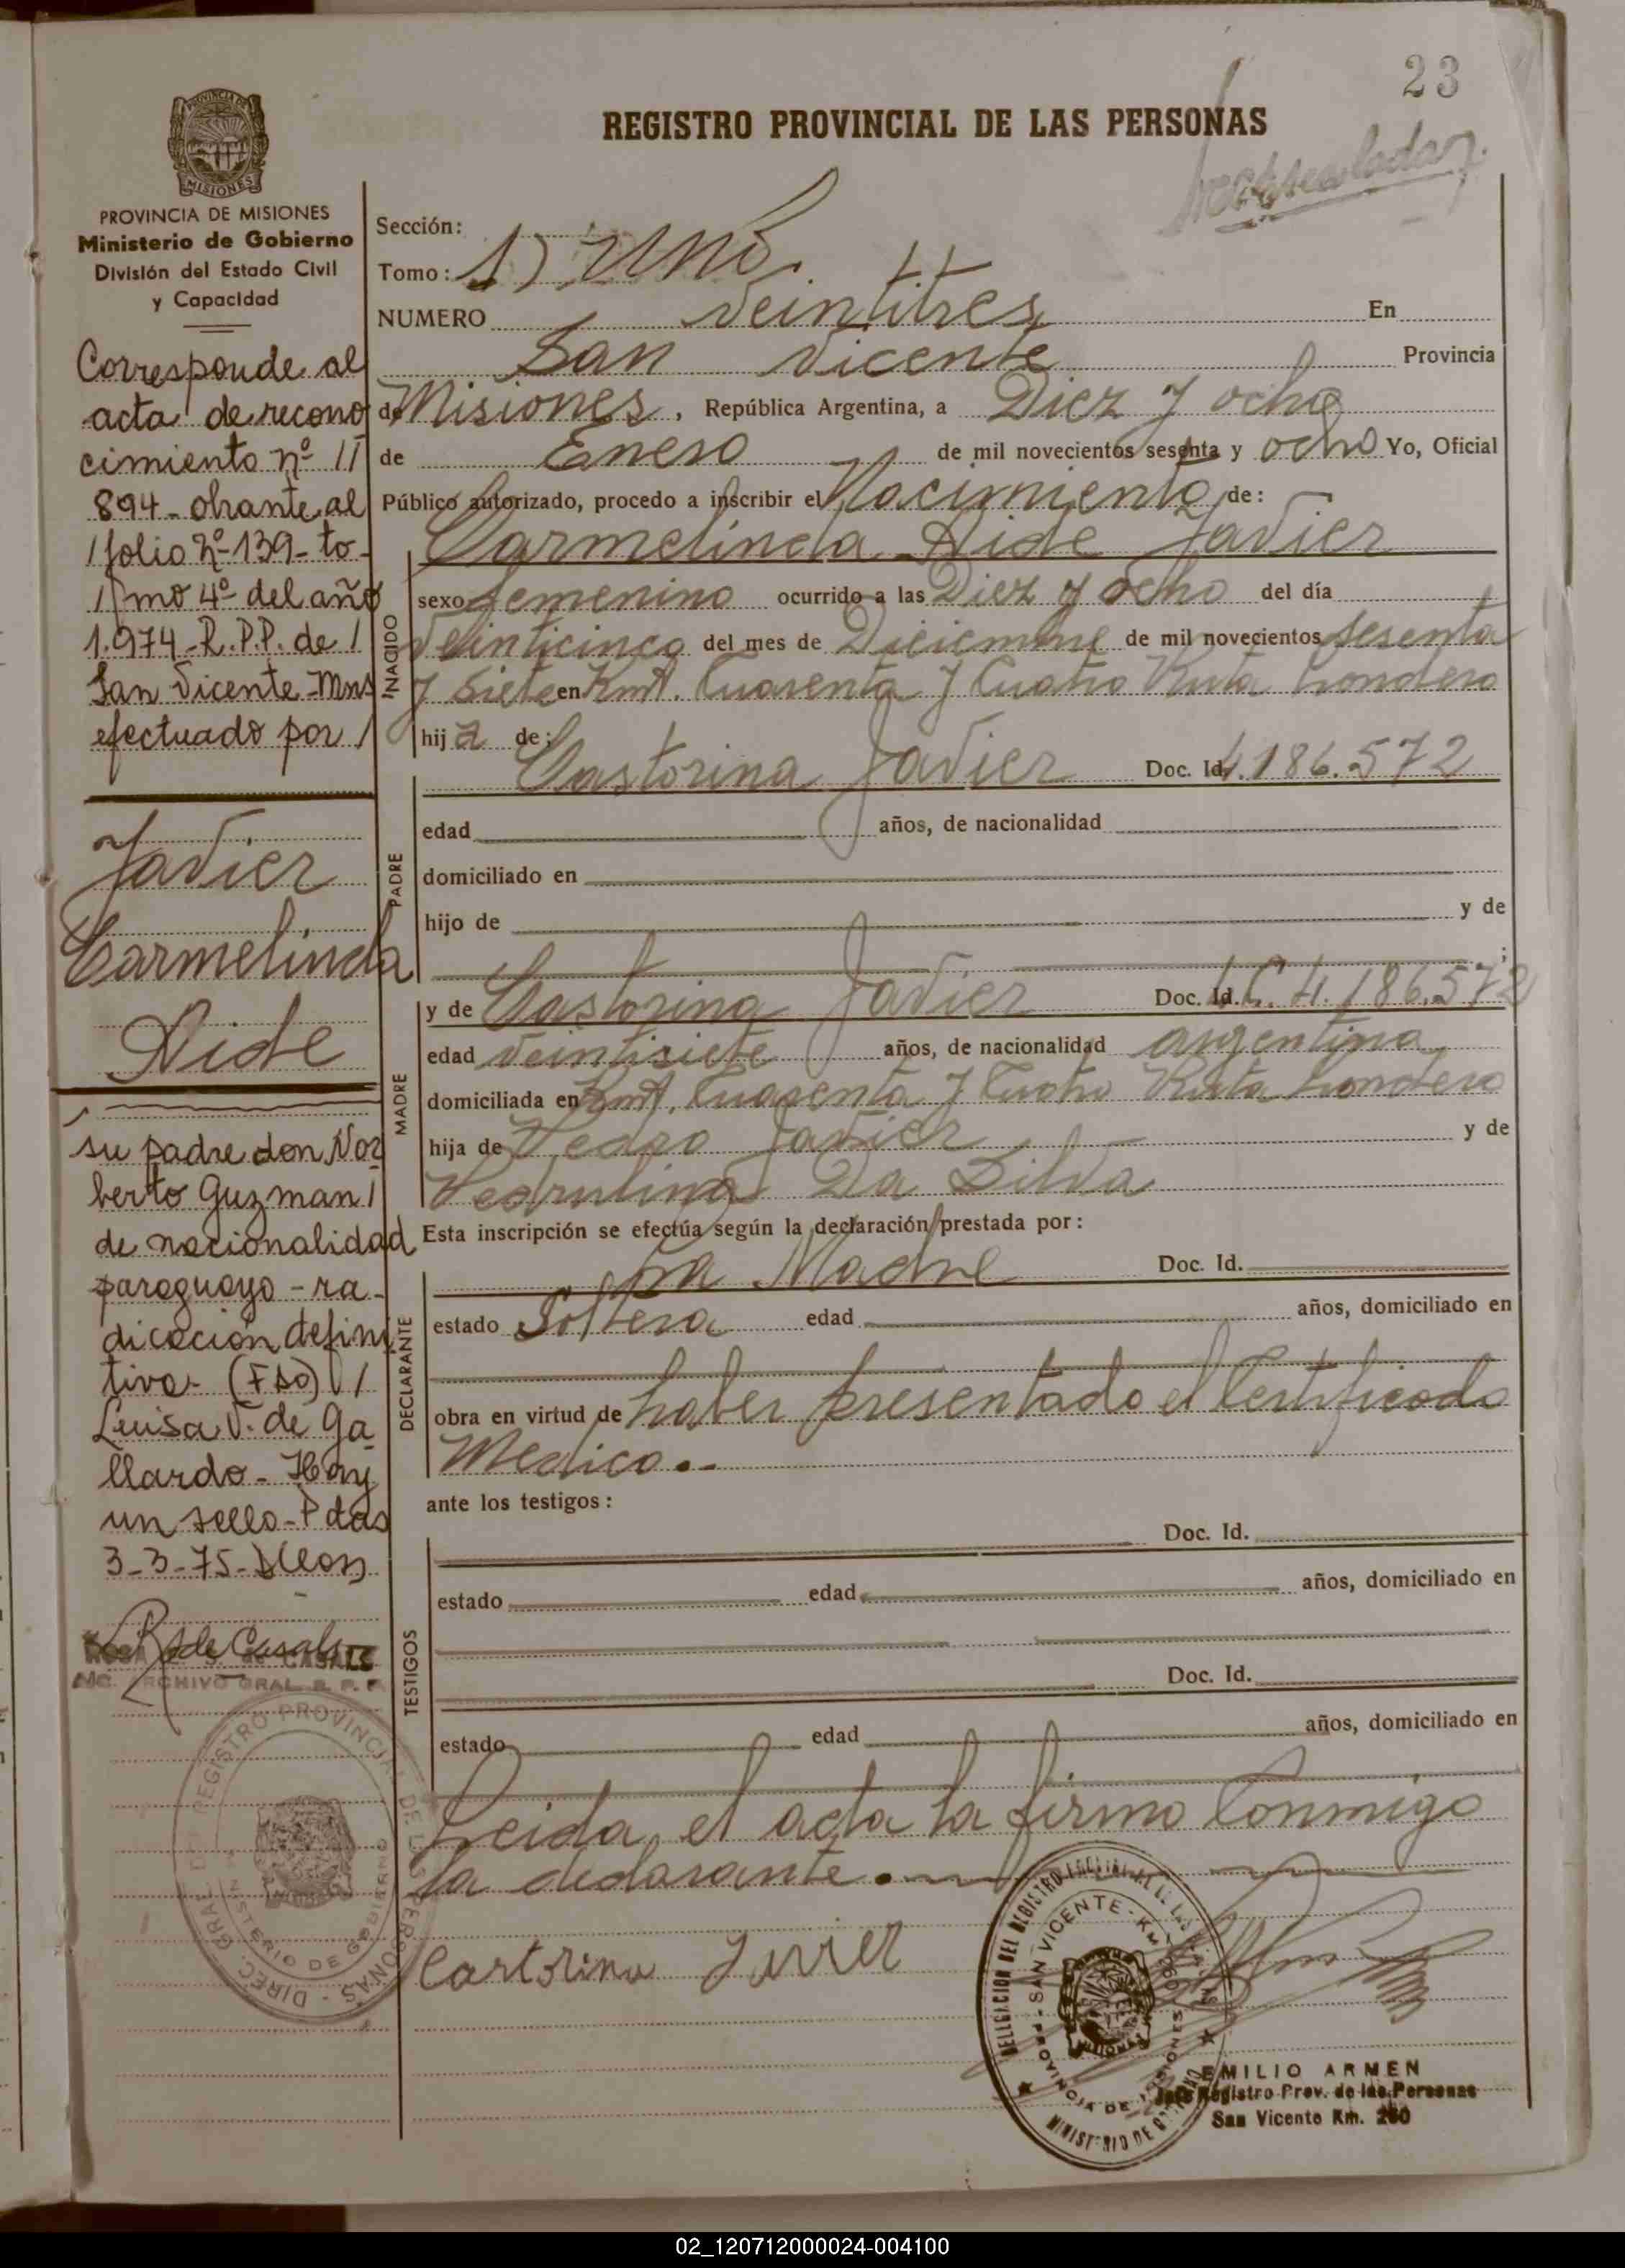 23
REGISTRO PROVINCIAL DE LAS PERSONAS
PROVINCIA DE
MISIONES
PROVINCIA DE MISIONES
Ministerio de Gobierno
División del Estado Civil
y Capacidad
Corresponde al
acta de recono
cimiento nº 11
894 - obrante al
folio Nº 139 - to-
mo 4º del año
1.974 - R.P.P. de /
San Vicente - Mns
efectuado por /
Javier
Carmelinda
Aide
su padre don Nor
berto Guzman /
de nacionalidad
paraguayo - ra-
dicación defini
tiva - (Fdo) /
Luisa V. de Ga
llardo - Hay
un sello - Pdas
3-3-75-
R de Casals
ARCHIVO GRAL. R. P. P.
Sección:
Tomo: 1) Uno.
NUMERO Veintitres En
San Vicente Provincia
de Misiones. República Argentina, a Diez y ocho
de Enero de mil novecientos sesenta y ocho Yo, Oficial
Público autorizado, procedo a inscribir el Nacimiento de:
Carmelinda Aide Javier
INACIDO
sexo femenino ocurrido a las Diez y ocho del día
veinticinco del mes de Diciembre de mil novecientos sesenta
y Siete en Kmt. Cuarenta y Cuatro Ruta Londero
hija de:
Castorina Javier Doc. Id. 4.186.572
PADRE
edad años, de nacionalidad
domiciliado en
hijo de y de
;
MADRE
y de Castorina Javier Doc. Id. L.C. 4.186.572
edad veintisiete años, de nacionalidad argentina
domiciliada en Kmt. Cuarenta y Cuatro Ruta Londero
hija de Pedro Javier y de
Pedrulina Da Silva
Esta inscripción se efectúa según la declaración prestada por:
DECLARANTE
La Madre Doc. Id.
estado Soltera edad años, domiciliado en
obra en virtud de haber presentado el Certificado
Medico.-
ante los testigos:
TESTIGOS
Doc. Id.
estado edad años, domiciliado en
Doc. Id.
estado edad años, domiciliado en
Leida el acta la firma Conmigo
la declarante.
Castorina Javier
DIREC. GRAL. DEL REGISTRO PROVINCIAL DE LAS PERSONAS
MINISTERIO DE GOBIERNO
DELEGACION DEL REGISTRO PROVINCIAL DE LAS PERSONAS
SAN VICENTE - KM. 260
PROVINCIA DE MISIONES
MINISTERIO DE GOBIERNO
EMILIO ARMEN
Jefe Registro Prov. de las Personas
San Vicente Km. 260
02_120712000024-004100